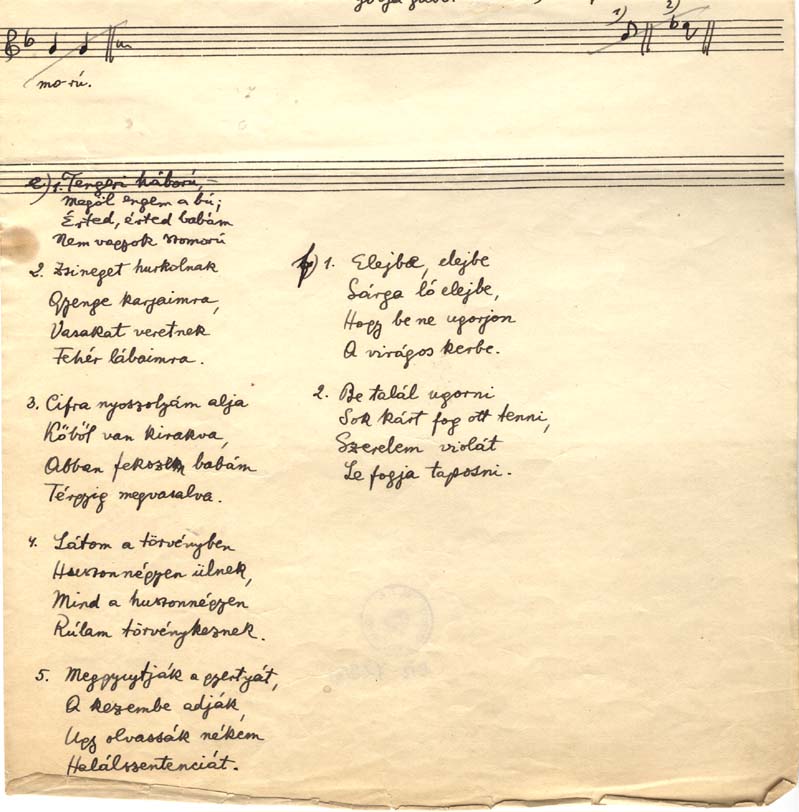 mo-rú.
1)
2)
e) 1. Tengeri háború, –
megöl engem a bú;
Érted, érted babám
Nem vagyok szomorú
2. Zsineget hurkolnak
Gyenge karjaimra,
Vasakat veretnek
Fehér lábaimra.
3. Cifra nyoszolyám alja
Kőből van kirakva,
Abban fekszek babám
Térgyig megvasalva.
4. Látom a törvényben
Huszonnégyen ülnek,
Mind a huszonnégyen
Rúlam törvénykeznek.
5. Meggyujtják a gyertyát,
A kezembe adják,
Ugy olvassák nékem
Halálszentenciát.
f) 1. Elejbe, elejbe
Sárga ló elejbe,
Hogy be ne ugorjon
A virágos kerbe.
2. Be talál ugorni
Sok kárt fog ott tenni,
Szerelem violát
Le fogja taposni.